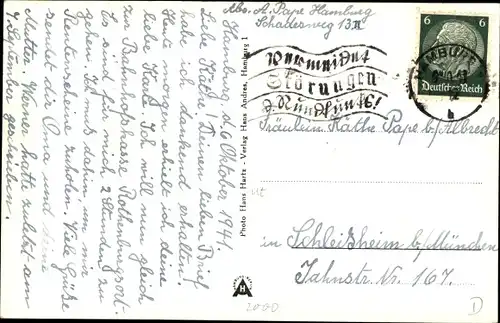 Abs. A. Pape Hamburg
Schaderweg 13 II
Hamburg d. 6. Oktober 1941.
Liebe Käte! Deinen lieben Brief
habe ich dankend erhalten.
Heute morgen erhielt ich deine
liebe Karte. Ich will nun gleich
zur Bahnhofskasse Rothenburgsort.
Es sind für mich 2 Stunden zu
gehen. Ich muß dahin, um mir
Reisezehrung zu holen. Viele Grüße
sendet die Oma und deine
Mutter. Werner hatte zuletzt am
7. September geschrieben.
Photo Hans Hartz - Verlag Hans Andres, Hamburg 1
Vermeidet
Störungen
d. Rundfunks!
6 6
Deutsches Reich
Fräulein Käthe Pape b/Albrecht
in Schleißheim b/München
Jahnstr. Nr. 167.
H
2000
D